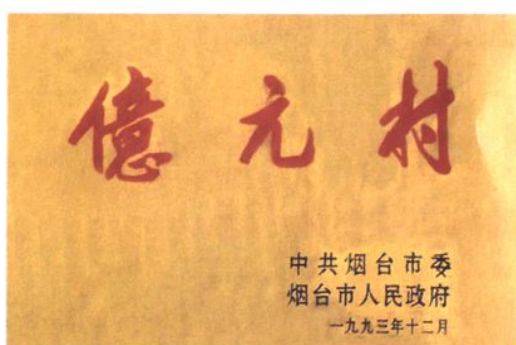 億元村
中共烟台市委
烟台市人民政府
一九九三年十二月